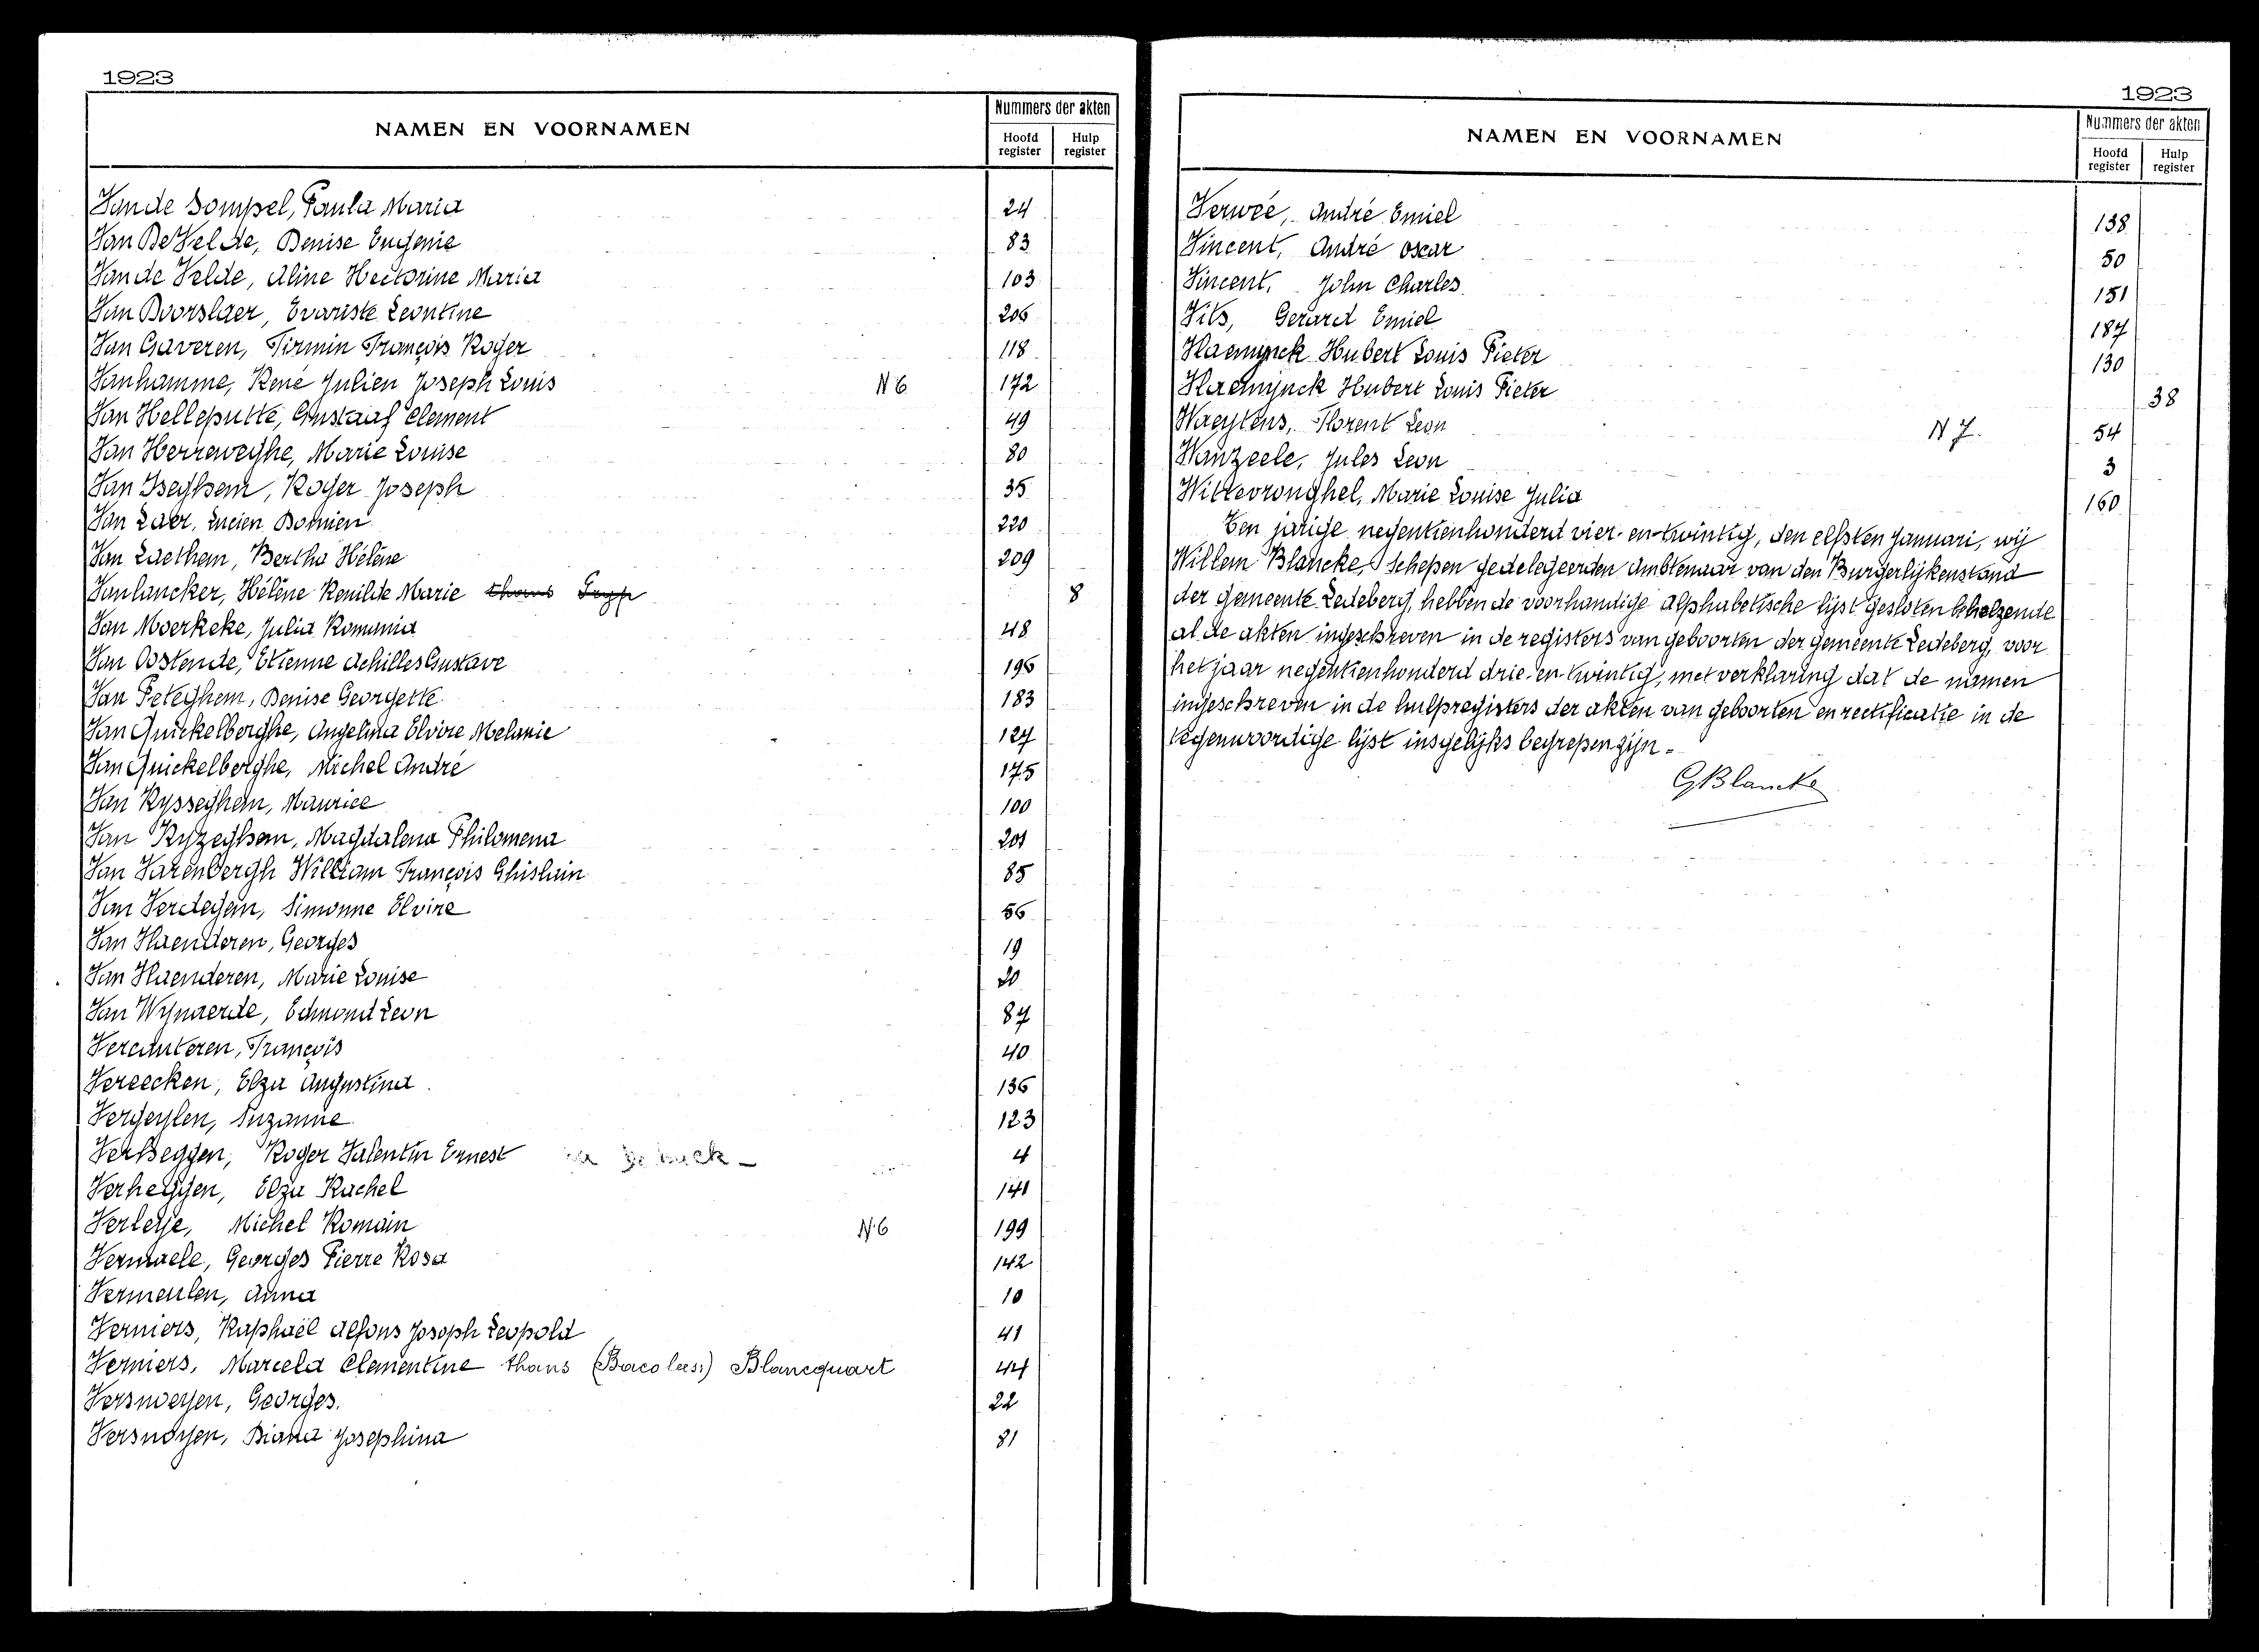 1923
NAMEN EN VOORNAMEN
Nummers der akten
Hoofd register
Hulp register
Van de Sompel, Paula Maria 24
Van De Velde, Denise Eugenie 83
Van de Velde, Aline Hectorine Maria 103
Van Doorslaer, Evariste Leontine 206
Van Gaveren, Firmin François Roger 118
Vanhamme, René Julien Joseph Louis N 6 172
Van Helleputte, Gustaaf Clement 49
Van Herreweghe, Marie Louise 80
Van Iseghem, Roger Joseph 35
Van Laer, Lucien Domien 220
Van Laethem, Bertha Hélène 209
Vanlancker, Hélène Renilde Marie thans 8
Van Moerkeke, Julia Romania 48
Van Oostende, Etienne Achilles Gustave 196
Van Peteghem, Denise Georgette 183
Van Quickelberghe, Angelina Elvire Melanie 127
Van Quickelberghe, Michel André 175
Van Rysseghem, Maurice 100
Van Ryzeghem, Magdalena Philomena 201
Van Varenbergh William François Ghislain 85
Van Verdegem, Simonne Elvire 56
Van Vlaenderen, Georges 19
Van Vlaenderen, Marie Louise 20
Van Wynaerde, Edmond Leon 87
Vercauteren, François 40
Vereecken, Elza Augustina 136
Vergeylen, Suzanne 123
Verheggen, Roger Valentin Ernest 4
Verheggen, Elza Rachel 141
Verleye, Michel Romain N 6 199
Vermaele, Georges Pierre Rosa 142
Vermeulen, Anna 10
Verniers, Raphaël Alfons Joseph Leopold 41
Verniers, Marcela Clementine thans Blancquart 44
Versnoeyen, Georges. 22
Versnoyen, Diana Josephina 81
1923
NAMEN EN VOORNAMEN
Nummers der akten
Hoofd register
Hulp register
Verwée, André Emiel 138
Vincent, André Oscar 50
Vincent, John Charles 151
Vits, Gerard Emiel 187
Vlaemynck Hubert Louis Pieter 130
Vlaemynck Hubert Louis Pieter 38
Waeytens, Florent Leon N 7. 54
Wanzeele, Jules Leon 3
Wittevronghel, Marie Louise Julia 160
Ten jarige negentienhonderd vier-en-twintig, den elfsten Januari, wij
Willem Blancke, Schepen gedelegeerden Ambtenaar van den Burgerlijkenstand
der gemeente Ledeberg, hebben de voorhandige alphabetische lijst gesloten behelzende
al de akten ingeschreven in de registers van geboorten der gemeente Ledeberg, voor
het jaar negentienhonderd drie-en-twintig, met verklaring dat de namen
ingeschreven in de hulpregisters der akten van geboorten en rectificatie in de
tegenwoordige lijst insgelijks begrepen zijn.
GBlancke